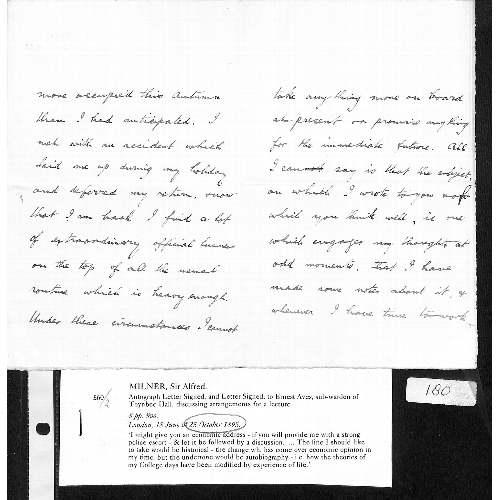 more occupied this autumn
than I had anticipated. I
met with an accident which
laid me up during my holiday
and deferred my return, & now
that I am back I find a lot
of extraordinary official business
on the top of all the usual
routine which is heavy enough.
Under these circumstances I cannot
take anything more on board
at present or promise anything
for the immediate future. All
I can say is that the subject,
on which I wrote to you & of
which you think well, is one
which engages my thoughts at
odd moments, that I have
made some notes about it, &
whenever I have time to work
180
MILNER, Sir Alfred.
£60/
Autograph Letter Signed, and Letter Signed, to Ernest Aves, sub-warden of
Toynbee Hall, discussing arrangements for a lecture.
6 pp. 8vo.
London, 18 June & 25 October 1895.
'I might give you an economic address - if you will provide me with a strong
police escort - & let it be followed by a discussion. ... The line I should like
to take would be historical - the change wh. has come over economic opinion in
my time, but the undertone would be autobiography - i.e. how the theories of
my College days have been modified by experience of life.'